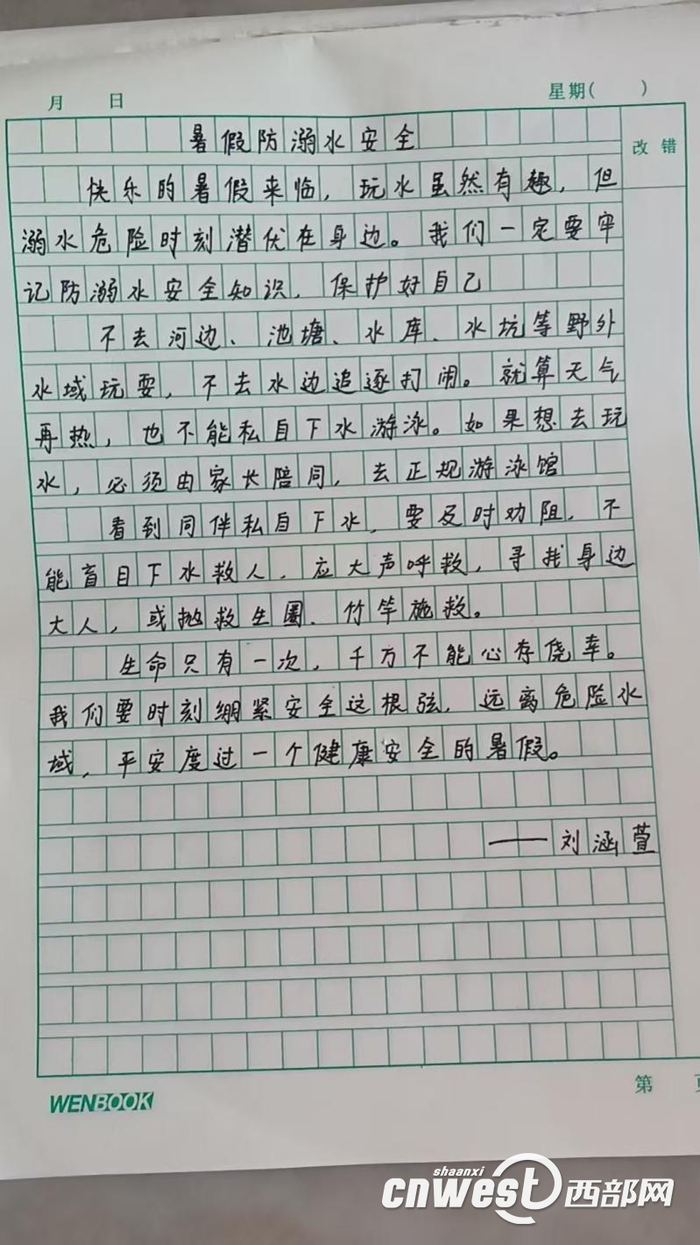 月 日 星期( )
暑假防溺水安全
改错
快乐的暑假来临，玩水虽然有趣，但
溺水危险时刻潜伏在身边。我们一定要牢
记防溺水安全知识，保护好自己
不去河边、池塘、水库、水坑等野外
水域玩耍，不去水边追逐打闹。就算天气
再热，也不能私自下水游泳。如果想去玩
水，必须由家长陪同，去正规游泳馆
看到同伴私自下水，要及时劝阻，不
能盲目下水救人，应大声呼救，寻找身边
大人，或抛救生圈、竹竿施救。
生命只有一次，千万不能心存侥幸。
我们要时刻绷紧安全这根弦，远离危险水
域，平安度过一个健康安全的暑假。
——刘涵萱
WENBOOK
第 页
shaanxi
cnwest西部网